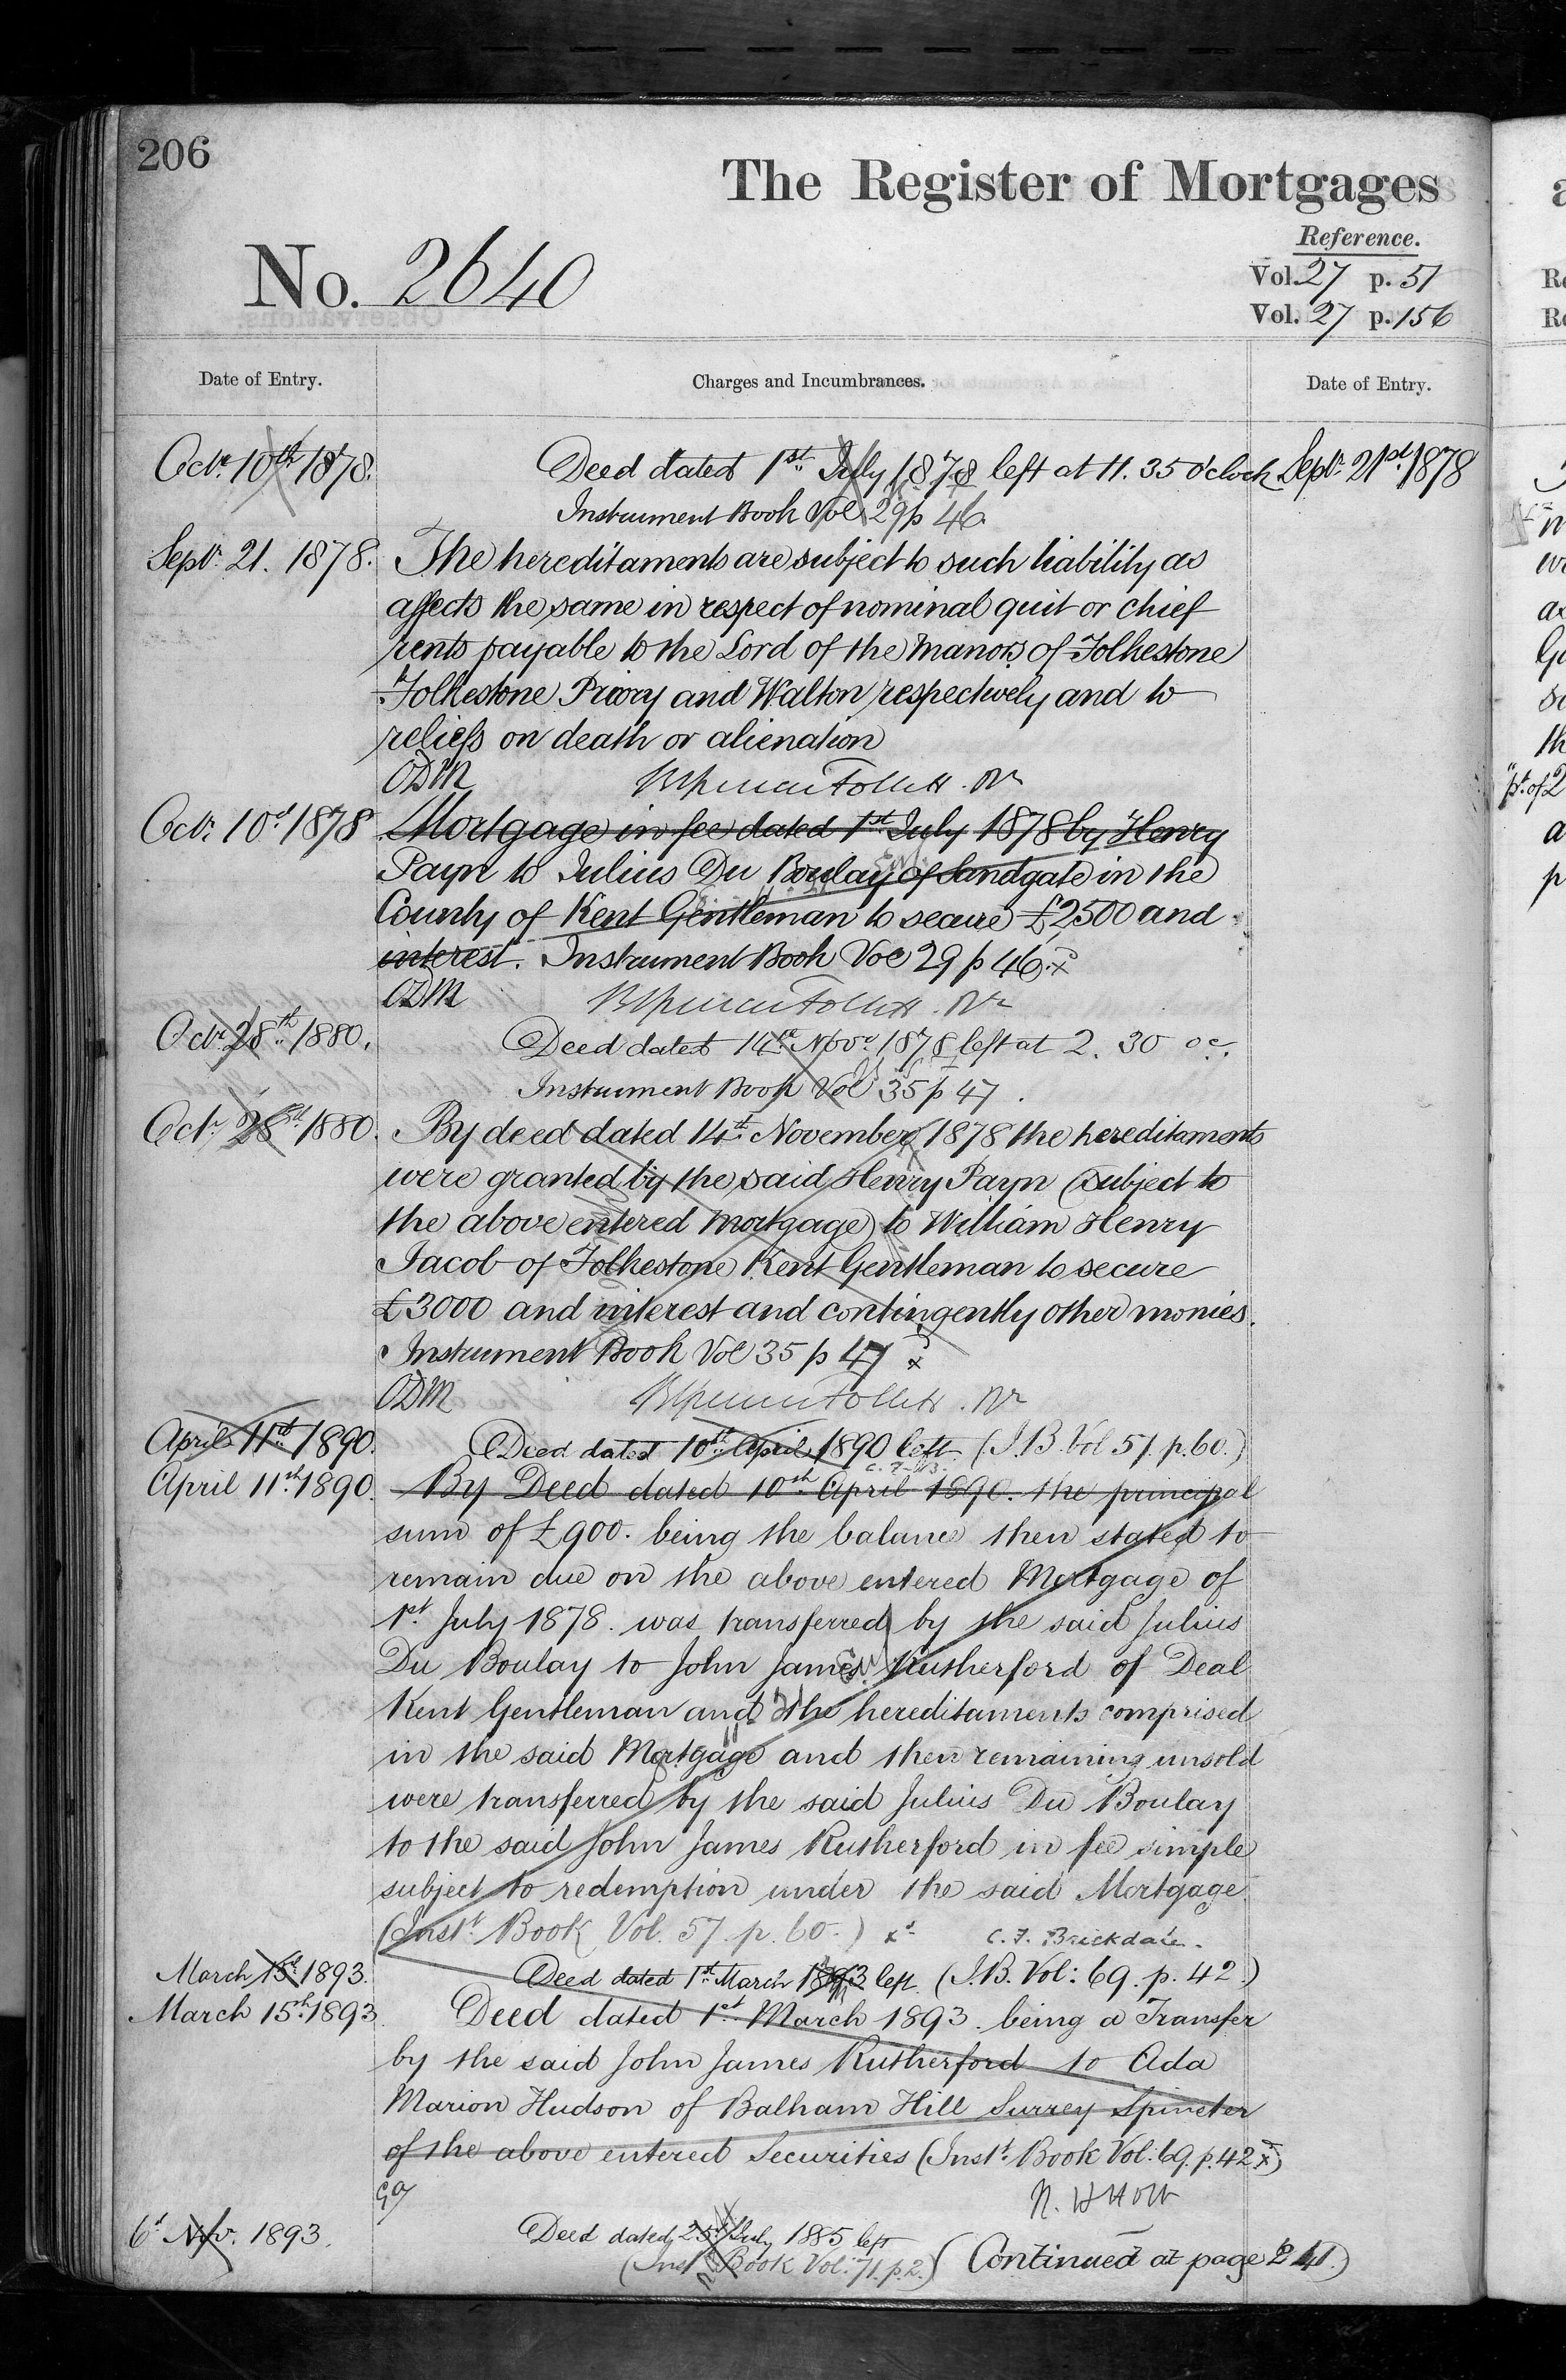 206
The Register of Mortgages
Reference.
No. 2640
Vol. 27 p. 51
Vol. 27 p. 156
Date of Entry.
Charges and Incumbrances.
Date of Entry.
Octr. 10th 1878.
Deed dated 1st July 1878 left at 11.35 o'clock
Septr. 21st 1878
Instrument Book Vol 29 p 46
Septr. 21. 1878.
The hereditaments are subject to such liability as
affects the same in respect of nominal quit or chief
rents payable to the Lord of the Manors of Folkestone
Folkestone Priory and Walton respectively and to
reliefs on death or alienation
ODM
Octr. 10th 1878
Mortgage in fee dated 1st July 1878 by Henry
Payn to Julius Du Boulay of Sandgate in the
County of Kent Gentleman to secure £2500 and
interest. Instrument Book Vol 29 p 46.
ODM
Octr. 28th 1880.
Deed dated 14th Novr. 1878 left at 2.30 oc.
Instrument Book Vol 35 p 47.
Octr. 28th 1880.
By deed dated 14th November 1878 the hereditaments
were granted by the said Henry Payn (subject to
the above entered mortgage) to William Henry
Jacob of Folkestone Kent Gentleman to secure
£3000 and interest and contingently other monies.
Instrument Book Vol 35 p 47
ODM
April 11th 1890.
Deed dated 10th April 1890 left (I.B. Vol 57. p. 60.)
April 11th 1890.
By Deed dated 10th April 1890. the principal
sum of £900. being the balance then stated to
remain due on the above entered Mortgage of
1st July 1878. was transferred by the said Julius
Du Boulay to John James Rutherford of Deal
Kent Gentleman and the hereditaments comprised
in the said Mortgage and then remaining unsold
were transferred by the said Julius Du Boulay
to the said John James Rutherford in fee simple
subject to redemption under the said Mortgage
(Instt. Book Vol. 57. p. 60.) C. F. Brickdale.
March 15th 1893.
Deed dated 1st March 1893 left (I.B. Vol: 69. p. 42.)
March 15th 1893
Deed dated 1st March 1893. being a Transfer
by the said John James Rutherford to Ada
Marion Hudson of Balham Hill Surrey Spinster
of the above entered Securities (Instt. Book Vol: 69. p. 42)
6th Novr. 1893.
Deed dated 25th July 1885 left
(Inst Book Vol: 71. p. 2.) (Continued at page 241.)